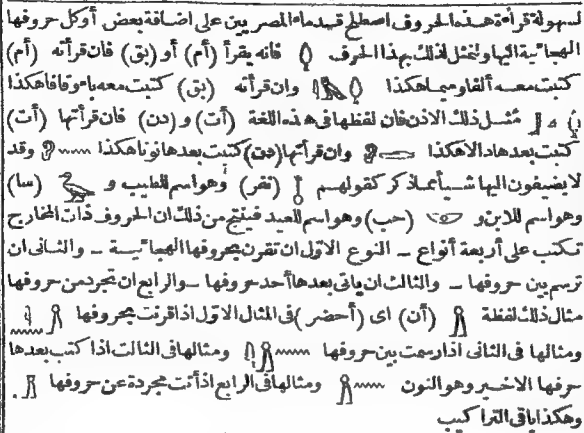 لسهولة قراءة هذه الحروف اصطلح قدماء المصريين على اضافة بعض أو كل حروفها
الهجائية اليها ولنمثل لذلك بهذا الحرف فانه يقرأ (أم) أو (بق) فان قرأته (أم)
كتبت معه ألفا وميما هكذا وان قرأته (بق) كتبت معه باء وقافا هكذا
مثل ذلك الاذن فان لفظها فى هذه اللغة (أت) و (دن) فان قرأتها (أت)
كتبت بعدها دالا هكذا وان قرأتها (دن) كتبت بعدها نونا هكذا وقد
لا يضيفون اليها شيأ مما ذكر كقولهم (نفر) وهو اسم للطيب و (سا)
وهو اسم للابن و (حب) وهو اسم للعيد فينتج من ذلك ان الحروف ذات المخارج
تكتب على أربعة أنواع – النوع الاول ان تقرن بحروفها الهجائية – والثانى ان
ترسم بين حروفها – والثالث ان ياتى بعدها أحد حروفها – والرابع ان تجرد من حروفها
مثال ذلك لفظة (أن) اى (أحضر) فى المثال الاول اذا قرنت بحروفها
ومثالها فى الثانى اذا رسمت بين حروفها ومثالها فى الثالث اذا كتب بعدها
حرفها الاخير وهو النون ومثالها فى الرابع اذا أتت مجردة عن حروفها .
وهكذا باقى التراكيب